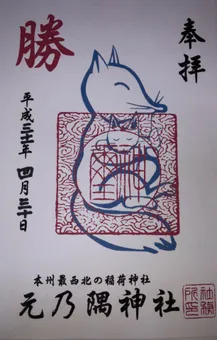 奉拝
勝
平成三十一年四月三十日
本州最西北の稲荷神社
元乃隅神社